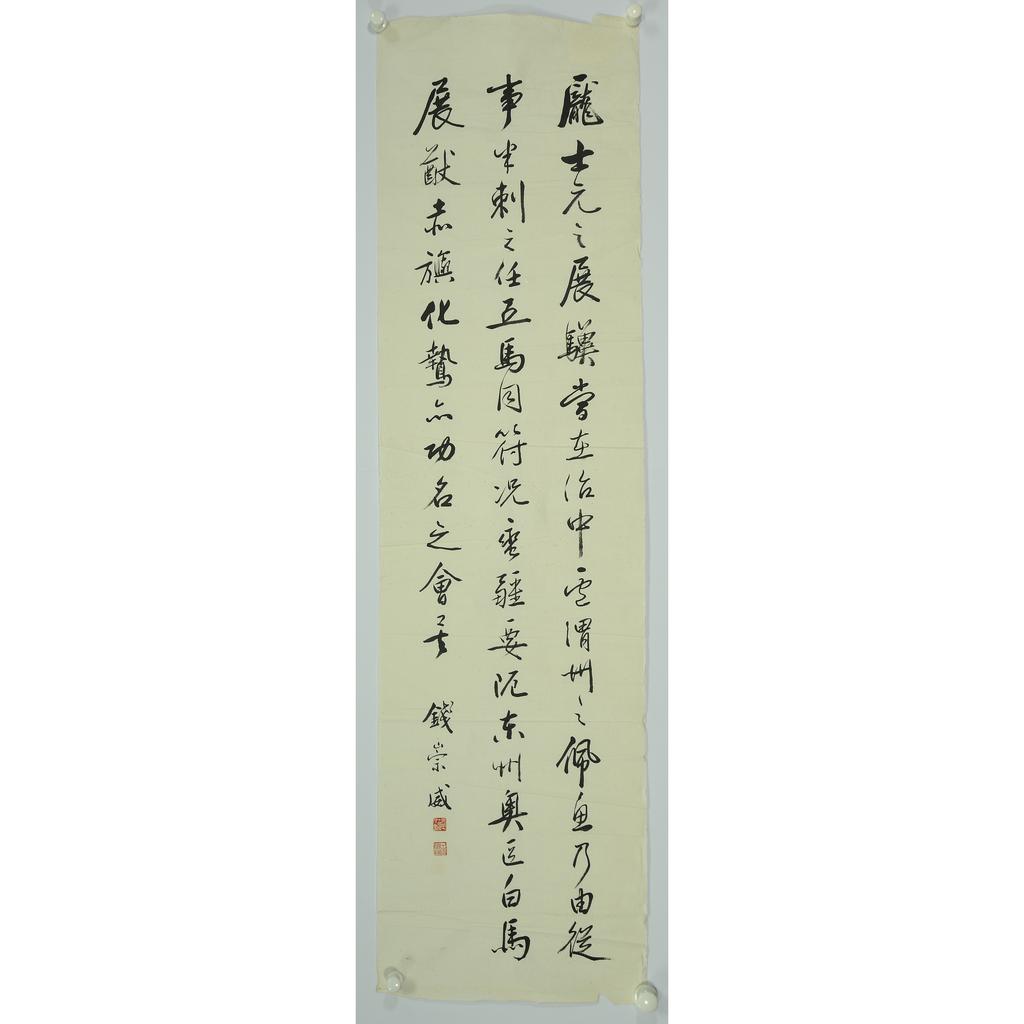 龐士元之展驥嘗在治中盧渭州之佩魚乃由從
事半刺之任五馬同符況蛮疆要阨东州奥區白馬
展猷赤旗化鷙亦功名之會矣
錢崇威